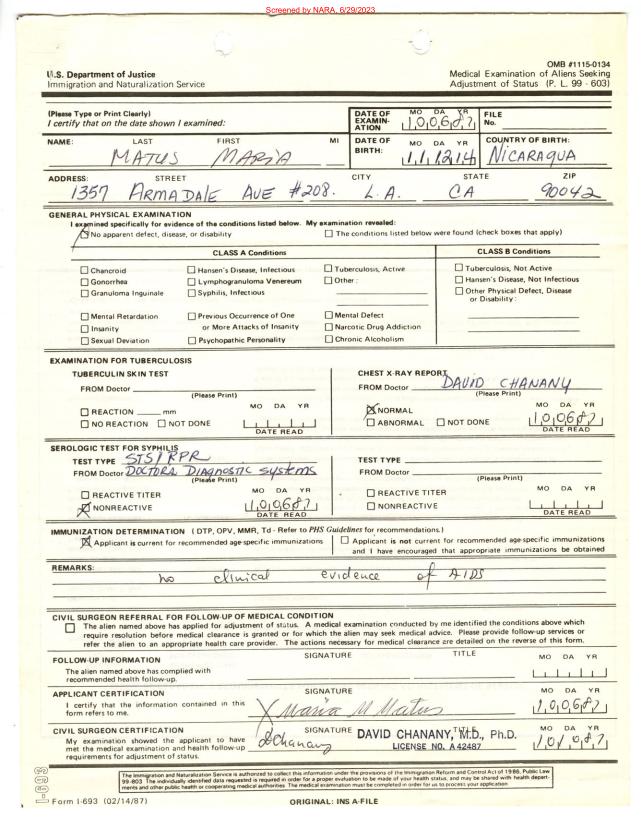 Screened by NARA, 6/29/2023
OMB #1115-0134
U.S. Department of Justice
Immigration and Naturalization Service
Medical Examination of Aliens Seeking
Adjustment of Status (P. L. 99 - 603)
(Please Type or Print Clearly)
I certify that on the date shown I examined:
DATE OF EXAMIN-ATION MO DA YR 100687 FILE No.
NAME: LAST FIRST MI DATE OF BIRTH: MO DA YR COUNTRY OF BIRTH:
MATUS MARIA 111214 NICARAQUA
ADDRESS: STREET CITY STATE ZIP
1357 ARMADALE AVE #208. L.A. CA 90042
GENERAL PHYSICAL EXAMINATION
I examined specifically for evidence of the conditions listed below. My examination revealed:
No apparent defect, disease, or disability The conditions listed below were found (check boxes that apply)
CLASS A Conditions CLASS B Conditions
Chancroid Hansen's Disease, Infectious Tuberculosis, Active Tuberculosis, Not Active
Gonorrhea Lymphogranuloma Venereum Other: Hansen's Disease, Not Infectious
Granuloma Inguinale Syphilis, Infectious Other Physical Defect, Disease
or Disability:
Mental Retardation Previous Occurrence of One Mental Defect
Insanity or More Attacks of Insanity Narcotic Drug Addiction
Sexual Deviation Psychopathic Personality Chronic Alcoholism
EXAMINATION FOR TUBERCULOSIS
TUBERCULIN SKIN TEST CHEST X-RAY REPORT
FROM Doctor FROM Doctor DAVID CHANANY
(Please Print) (Please Print)
MO DA YR MO DA YR
REACTION mm NORMAL
NO REACTION NOT DONE ABNORMAL NOT DONE 100687
DATE READ DATE READ
SEROLOGIC TEST FOR SYPHILIS
TEST TYPE STS/RPR TEST TYPE
FROM Doctor DOCTORS DIAGNOSTIC SYSTEMS FROM Doctor
(Please Print) (Please Print)
REACTIVE TITER MO DA YR REACTIVE TITER MO DA YR
NONREACTIVE 100687 NONREACTIVE
DATE READ DATE READ
IMMUNIZATION DETERMINATION (DTP, OPV, MMR, Td - Refer to PHS Guidelines for recommendations.)
Applicant is current for recommended age-specific immunizations Applicant is not current for recommended age-specific immunizations
and I have encouraged that appropriate immunizations be obtained
REMARKS:
no clinical evidence of AIDS
CIVIL SURGEON REFERRAL FOR FOLLOW-UP OF MEDICAL CONDITION
The alien named above has applied for adjustment of status. A medical examination conducted by me identified the conditions above which
require resolution before medical clearance is granted or for which the alien may seek medical advice. Please provide follow-up services or
refer the alien to an appropriate health care provider. The actions necessary for medical clearance are detailed on the reverse of this form.
FOLLOW-UP INFORMATION SIGNATURE TITLE MO DA YR
The alien named above has complied with
recommended health follow-up.
APPLICANT CERTIFICATION SIGNATURE MO DA YR
I certify that the information contained in this
form refers to me. X Maria M Matus 100687
CIVIL SURGEON CERTIFICATION SIGNATURE TITLE MO DA YR
My examination showed the applicant to have
met the medical examination and health follow-up
requirements for adjustment of status.
DChanany DAVID CHANANY, M.D., Ph.D.
LICENSE NO. A 42487
The Immigration and Naturalization Service is authorized to collect this information under the provisions of the Immigration Reform and Control Act of 1986, Public Law
99-603. The individually identified data requested is required in order for a proper evaluation to be made of your health status, and may be shared with health depart-
ments and other public health or cooperating medical authorities. The medical examination must be completed in order for us to process your application.
Form I-693 (02/14/87) ORIGINAL: INS A-FILE